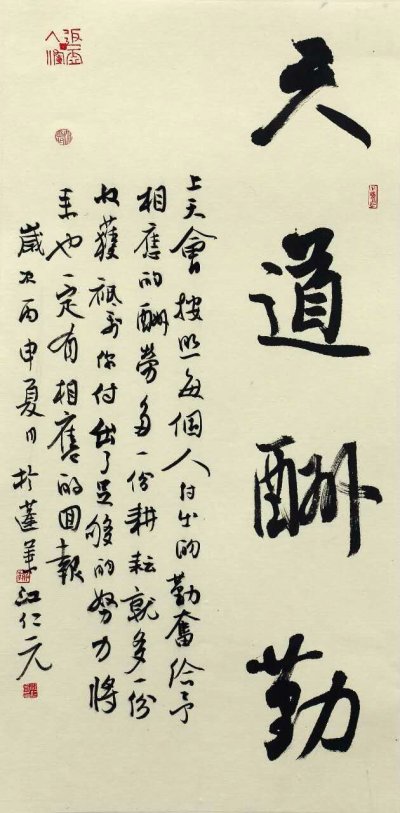 天道酬勤
上天會按照每個人付出的勤奮給予
相應的酬勞多一份耕耘就多一份
收獲祗要你付出了足夠的努力將
来也一定有相應的回報
歲次丙申夏月於江仁元
返虛入渾